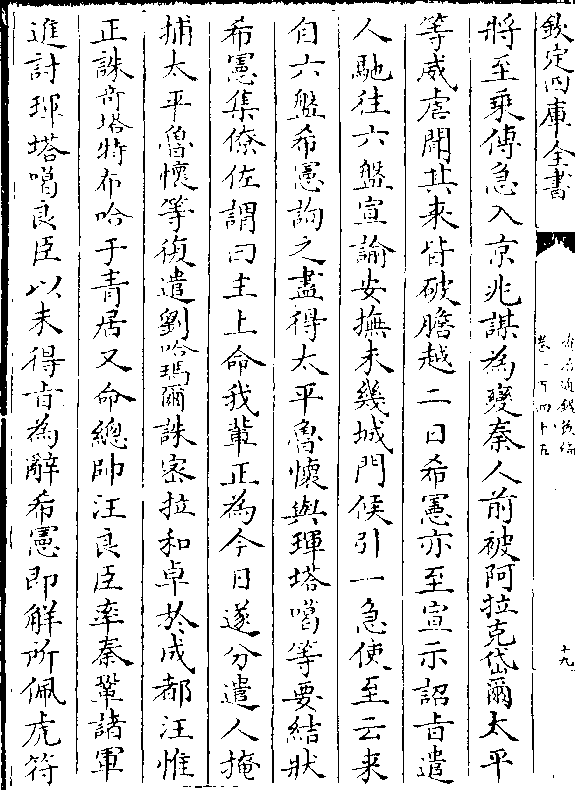 欽定四庫全書
資治通鑑後編
卷一百四十五
十九
將至乘傳急入京兆謀為變秦人前被阿拉克岱爾太平
等威虐聞其來皆破膽越二日希憲亦至宣示詔㫖遣
人馳往六盤宣諭安撫未幾城門候引一急使至云来
自六盤希憲詢之盡得太平魯懐與琿塔噶等要結狀
希憲集僚佐謂曰主上命我輩正為今日遂分遣人掩
捕太平魯懐等復遣劉哈瑪爾誅宻拉和卓於成都汪惟
正誅竒塔特布哈于青居又命總帥汪良臣率秦鞏諸軍
進討琿塔噶良臣以未得㫖為辭希憲即解所佩虎符